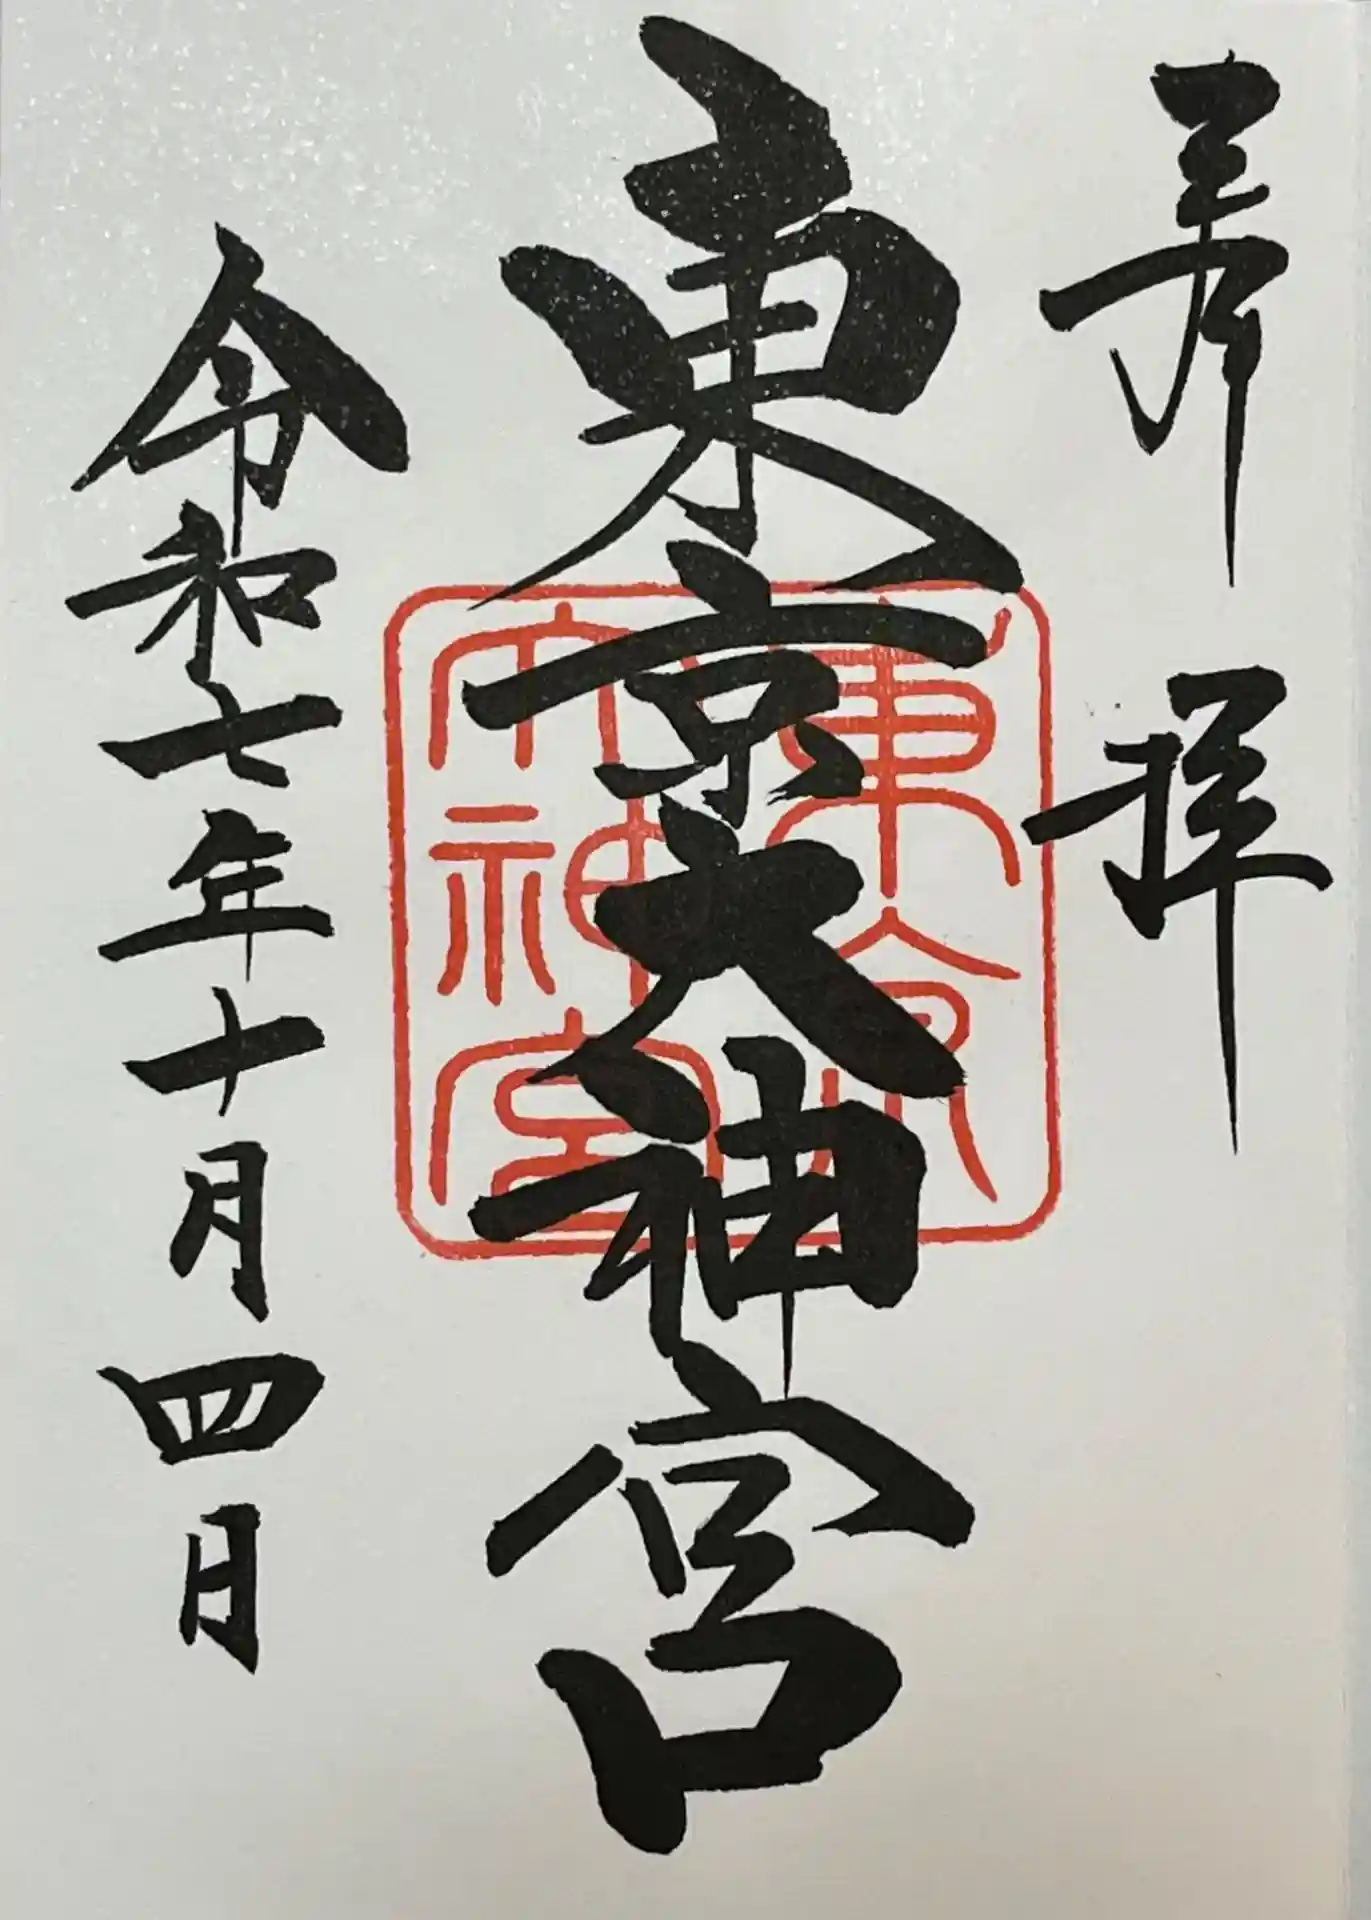 奉拝
東京大神宮
東京
大神宮
令和七年十月四日